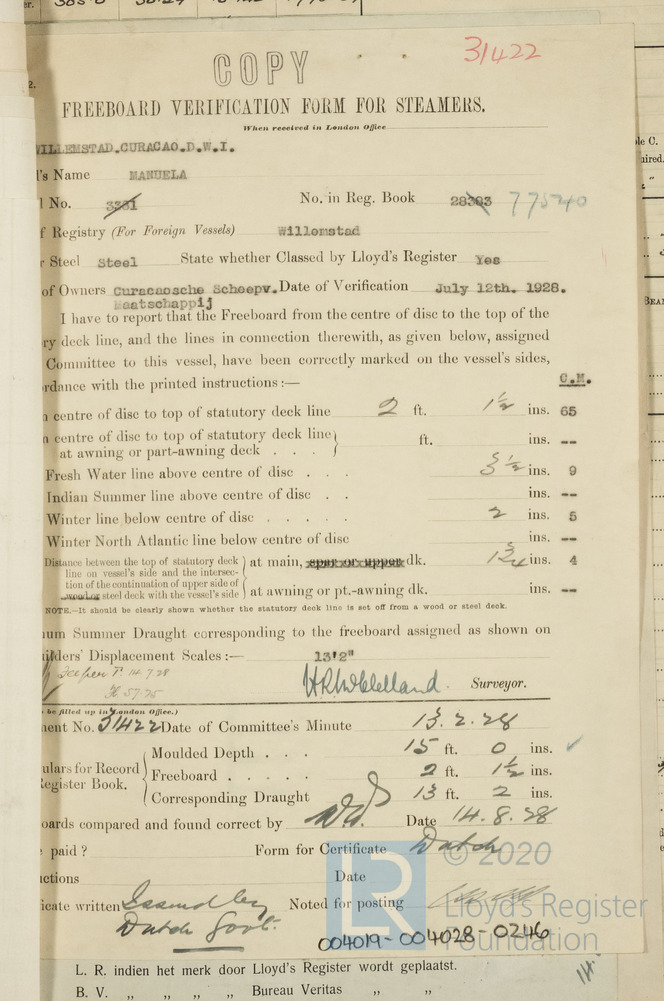 COPY
31422
FREEBOARD VERIFICATION FORM FOR STEAMERS.
When received in London Office
WILLEMSTAD.CURACAO.D.W.I.
's Name MANUELA
No. 3381 No. in Reg. Book 28383 77540
f Registry (For Foreign Vessels) Willemstad
r Steel Steel State whether Classed by Lloyd's Register Yes
of Owners Curacaosche Scheepv. Date of Verification July 12th. 1928.
Maatschappij
I have to report that the Freeboard from the centre of disc to the top of the
ry deck line, and the lines in connection therewith, as given below, assigned
Committee to this vessel, have been correctly marked on the vessel's sides,
rdance with the printed instructions :— C.M.
centre of disc to top of statutory deck line 2 ft. 1½ ins. 65
centre of disc to top of statutory deck line ft. ins. --
at awning or part-awning deck . . .
Fresh Water line above centre of disc . . . 3½ ins. 9
Indian Summer line above centre of disc . . ins. --
Winter line below centre of disc . . . . . 2 ins. 5
Winter North Atlantic line below centre of disc ins. --
Distance between the top of statutory deck line on vessel's side and the intersection of the continuation of upper side of wood or steel deck with the vessel's side
at main, spar or upper dk. 1¾ ins. 4
at awning or pt.-awning dk. ins. --
NOTE.—It should be clearly shown whether the statutory deck line is set off from a wood or steel deck.
um Summer Draught corresponding to the freeboard assigned as shown on
ilders' Displacement Scales :— 13'2"
14.7.28
Surveyor.
be filled up in London Office.)
ment No. 31422 Date of Committee's Minute 13.2.28
ulars for Record
Register Book.
Moulded Depth . . . 15 ft. 0 ins.
Freeboard . . . . . 2 ft. 1½ ins.
Corresponding Draught 13 ft. 2 ins.
oards compared and found correct by Date 14.8.28
paid ? Form for Certificate Dutch
uctions Date
icate written Issued by Noted for posting
Dutch Govt.
© 2020
Lloyd's Register
Foundation
004019-004028-0246
L. R. indien het merk door Lloyd's Register wordt geplaatst.
B. V. „ „ „ „ Bureau Veritas „ „